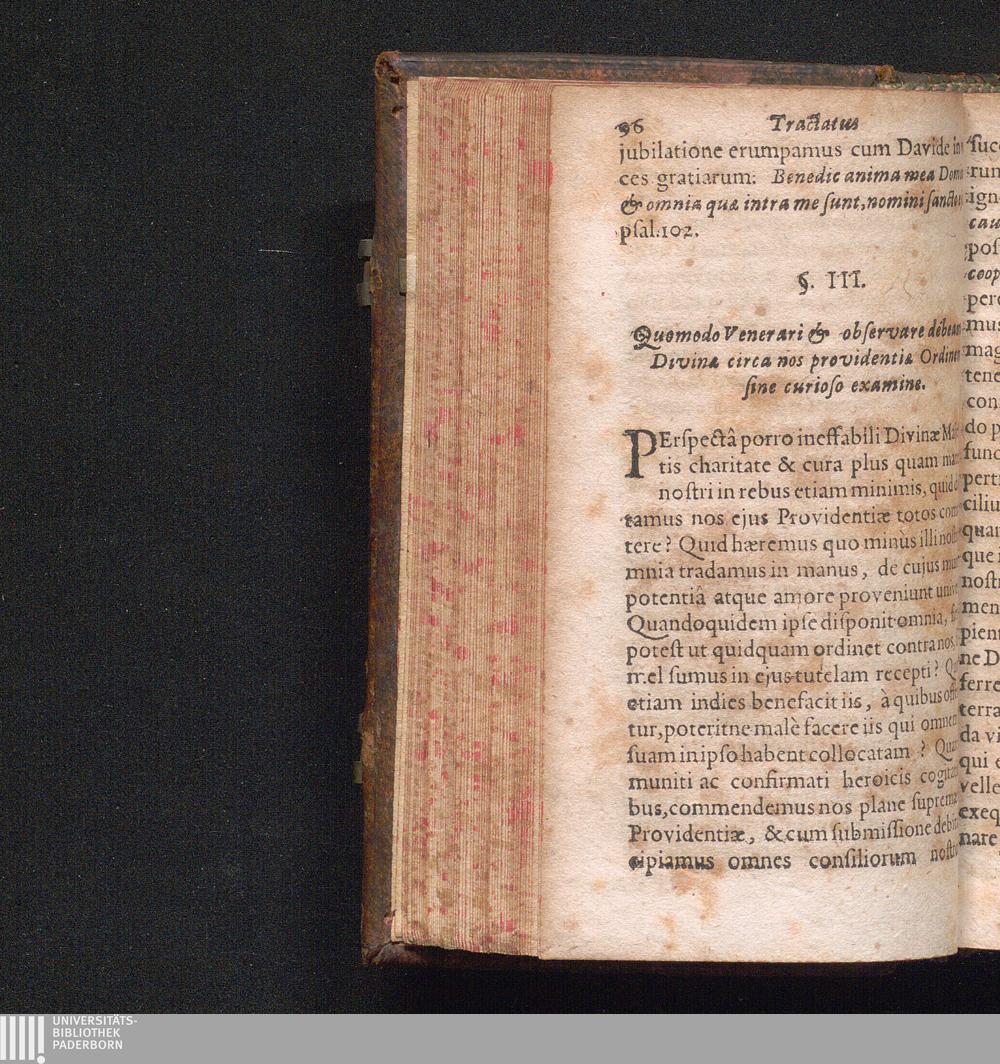 96 Tractatus
jubilatione erumpamus cum Davide in
ces gratiarum: Benedic anima mea Dom
& omnia quæ intra me ſunt, nomini ſancto
pſal. 102.
§. III.
Quomodo Venerari & obſervare debeam
Divinæ circa nos providentiæ Ordinem
ſine curioſo examine.
PErſpectâ porro ineffabili Divinæ Ma
tis charitate & cura plus quam ma
noſtri in rebus etiam minimis, quid
tamus nos ejus Providentiæ totos com
tere? Quid hæremus quo minùs illi noſt
mnia tradamus in manus, de cujus
potentiâ atque amore proveniunt univ
Quandoquidem ipſe diſponit omnia,
poteſt ut quidquam ordinet contra nos,
mel ſumus in ejus tutelam recepti?
etiam indies benefacit iis, à quibus off
tur, poteritne malè facere iis qui omnem
ſuam in ipſo habent collocatam? Qua
muniti ac confirmati heroicis cogita
bus, commendemus nos plane ſupremæ
Providentiæ, & cum ſubmiſſione debit
cipiamus omnes conſiliorum noſtr
ſucc
run
ign
cau
poſ
coop
perc
mus
mag
tene
con
do p
func
perti
ciliu
quan
que i
noſtr
men
pien
ne D
ferre
terra
da vi
qui e
velle
exeq
nare
UNIVERSITÄTS-
BIBLIOTHEK
PADERBORN